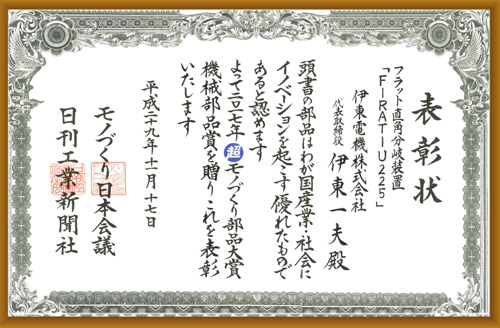 表彰状
フラット直角分岐装置
「FIRATIU225」
伊東電機株式会社
代表取締役 伊東一夫殿
頭書の部品はわが国産業・社会に
イノベーションを起こす優れたもので
あると認めます
よって二〇一七年超モノづくり部品大賞
機械部品賞を贈りこれを表彰
いたします
平成二十九年十一月十七日
モノづくり日本会議
日刊工業新聞社